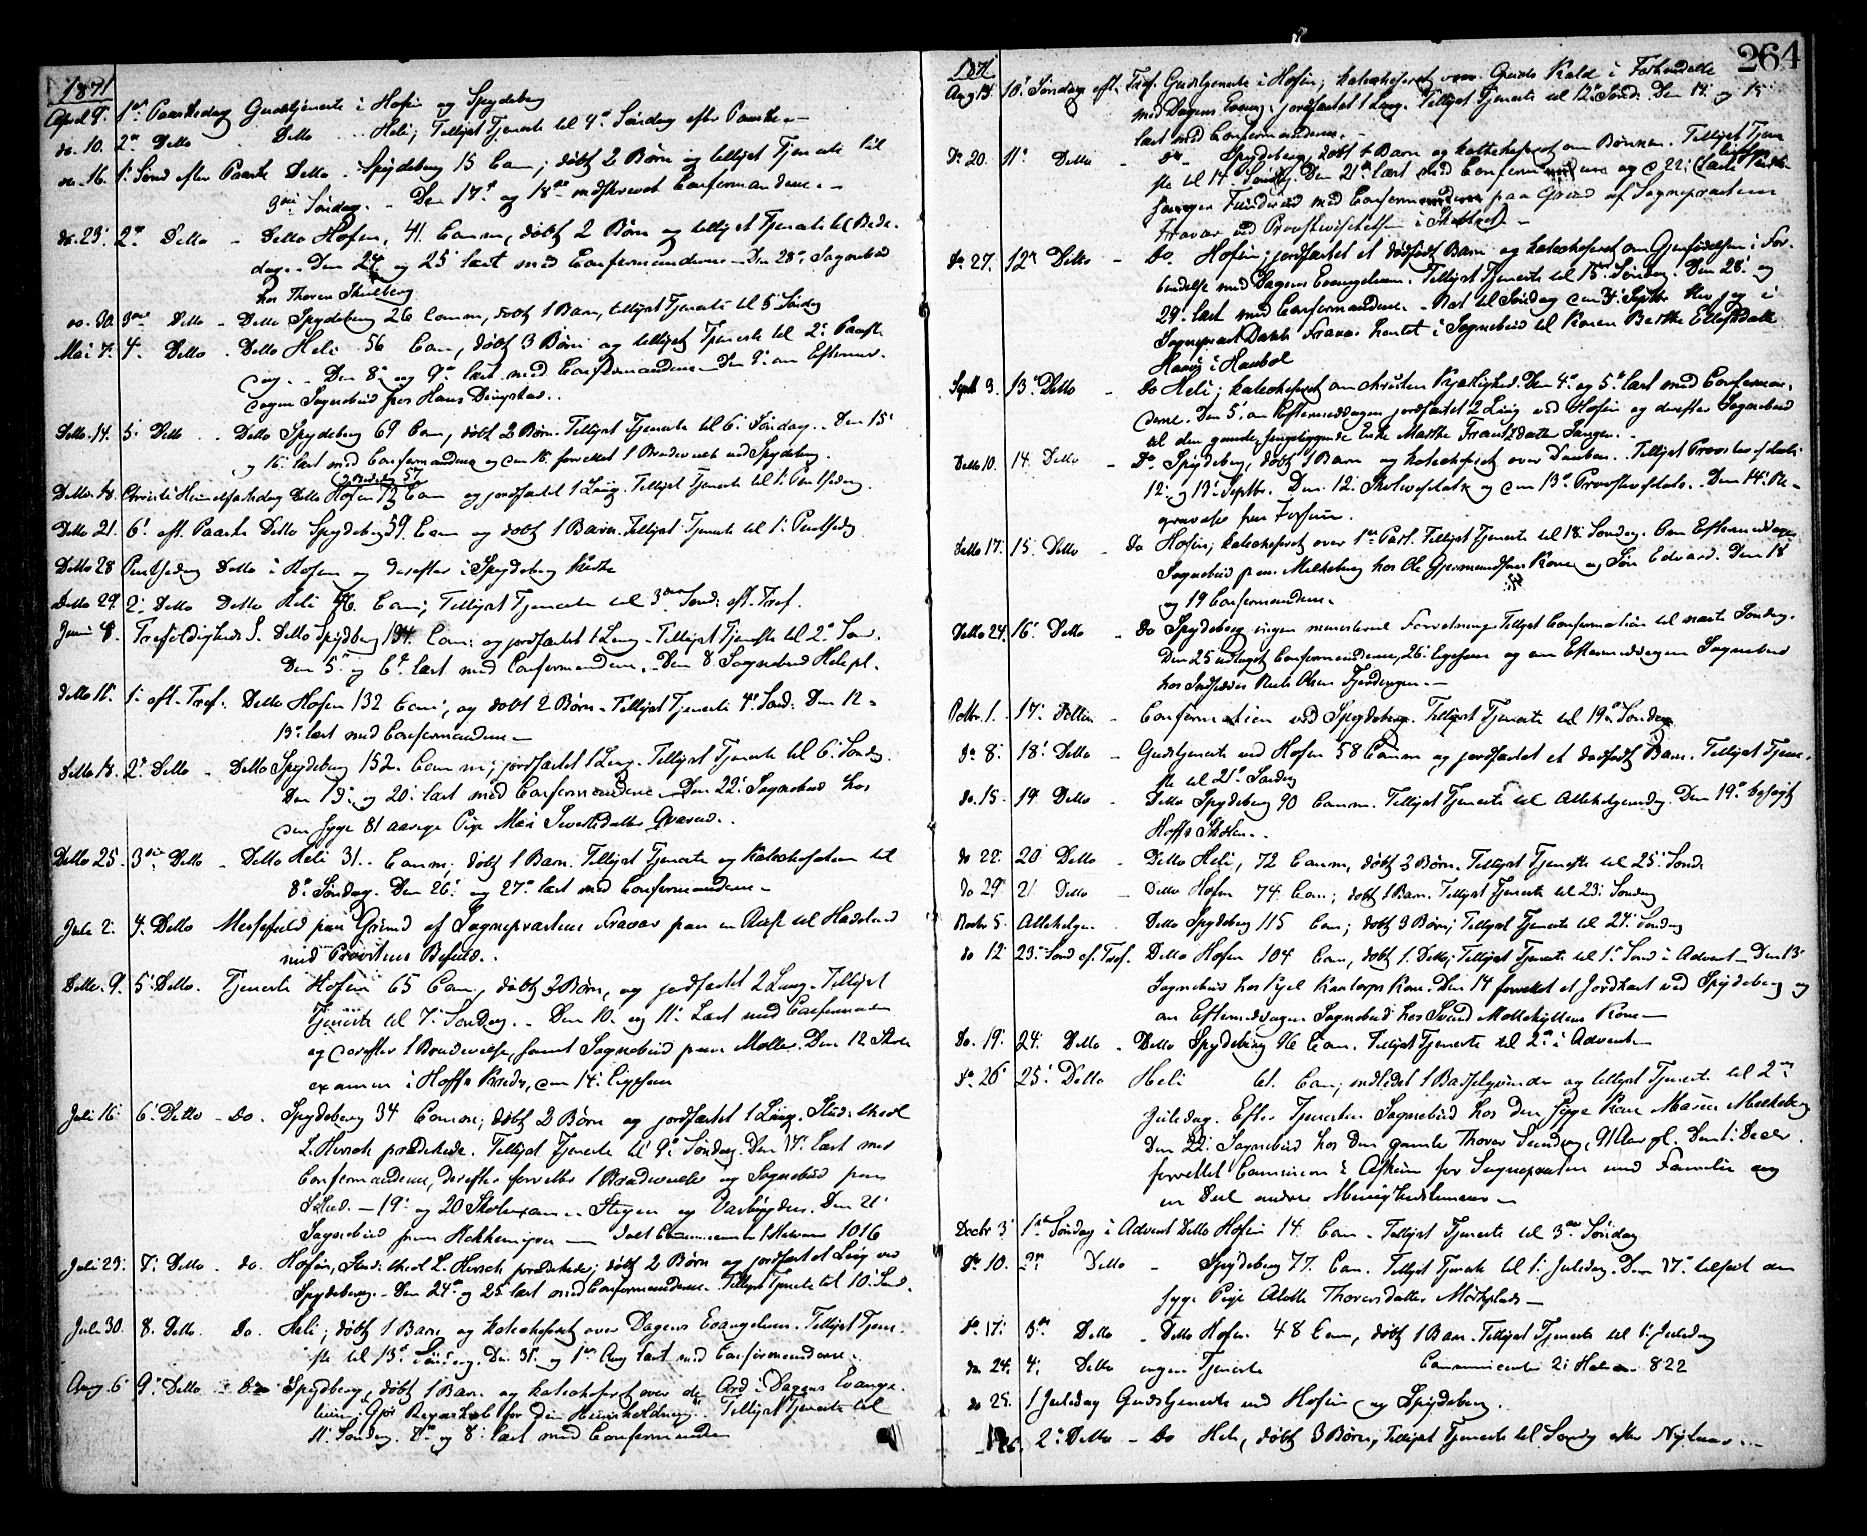 1871
April 9. 1ste Paaskedag Gudstjeneste i Hofin og Spydeberg
do. 10. 2n Detto Detto Heli; Tillyst Tjeneste til 4de Søndag efter Paaske.
do. 16. 1: Sønd efter Paaske Detto. Spydeberg 15 Com; døbt 2 Børn og tillyst Tjeneste til
3die Søndag. - Den 17de og 18de indskrevet Confirmanderne. -
do. 23: 2n Detto - Detto Hofin, 41. Comm, døbt 2 Børn og tillyst Tjeneste til Bede-
dag. - Den 24 og 25 læst med Confirmanderne - Den 28de Sognebud
hos Thoren Skulberg
do. 30. 3die Detto - Detto Spydeberg 26 Comm, døbt 1 Barn, tillyst Tjeneste til 5 Søndag
Mai 7. 4. Detto. Detto Heli 56 Com, døbt 3 Børn og tillyst Tjeneste til 2: Paaske
dag. - Den 8: og 9de læst med Confirmanderne - Den 9: om Eftermid-
dagen Sognebud hos Hans Dingstad..
Detto. 14. 5: Detto.. Detto Spydeberg 69 Com, døbt 2 Børn. Tillyst Tjeneste til 6: Søndag.. Den 15:
og 16: læst med Confirmanderne og den 16. forrettet 1 Brudevielse ved Spydeberg.
Detto. 18. Christi Himmelfartsdag Detto Hofin Com og jordfæstet 1 Liig. Tillyst Tjeneste til 1: Pintsedag.
Detto 21. 6: eft. Paaske Detto Spydeberg 59. Com og døbt 1 Barn. Tillyst Tjeneste til 1: Pintsedag
Detto 28 Pintsedag Detto i Hofin og derefter i Spydeberg Kirke
Detto 29. 2: Detto Detto Heli 46. Com; Tillyst Tjeneste til 3die Sønd: eft. Tref.
Juni 4. Trefoldigheds S. Detto Spydberg 134 Com: og jordfæstet 1 Liig - Tillyst Tjeneste til 2: Søn.
Den 5: og 6te læst med Confirmanderne. - Den 8 Sognebud Helipl.
Detto 11: 1: eft. Tref. Detto Hofin 132 Com; og døbt 2 Børn - Tillyst Tjeneste 4de Sønd: Den 12 -
13de læst med Confirmanderne -
Detto 18. 2: Detto - Detto Spydeberg 152. Comm; jordfæstet 1 Liig. Tillyst Tjeneste til 6: Søndag.
Den 19: og 20: læst med Confirmanderne - Den 22: Sognebud hos
den syge 81 aarige Pige Mari Sivertsdatter Qvarud..
Detto 25. 3die Detto - Detto Heli 31.. Comm; døbt 1 Barn. Tillyst Tjeneste og Katekisation til
8de Søndag. Den 26: og 27de læst med Confirmanderne -
Juli 2. 4. Detto Messefald paa Grund af Sognepræstens Fravær paa en Reise til Hadeland
med Provstens Befald..
Detto. 9. 5: Detto. Tjeneste Hofin 65 Com, døbt 3 Børn, og jordfæstet 2 Liig - Tillyst
Tjeneste til 7: Søndag.. Den 10: og 11: Læst med Confirmanden
og derefter 1 Brudevielse, samt Sognebud paa Moller. Den 12 Skole
examen i Hoffs Kreds, den 14: Ligesaa
Juli 16: 6: Detto - Do. Spydeberg 34 Comm; døbt 2 Børn og jordfæstet 1 Liig. Stud: theol
L. Hersch prædikede. Tillyst Tjeneste til 9: Søndag. Den 17: læst med
Confirmanderne, derefter forrettet 1 Brudevielse og Sognebud paa
- 19: og 20 Skolexamen i Stegen og Vasbygden. Den 21:
Sognebud paa Hakkemyra - Communicanter 1 Halvaar 1016
Juli 23: 7: Detto. do. Hofin, Stud: theol L. Hersch prædikede; døbt 2 Børn og jordfæstet Liig ved
Spydeberg. - Den 24de og 25 læst med Confirmanderne. Tillyst Tjeneste til 10: Sønd.
Juli 30. 8. Detto. Do. Heli; døbt 1 Barn og katechiseret over Dagens Evangelium. Tillyst Tjene-
ste til 13de Søndag. Den 31: og 1ste Aug læst med Confirmanderne.
Aug. 6 9: Detto - Do Spydberg, døbt 1 Barn og katechiseret over de Ord i Dagens Evange-
lium "Gjør Regnskab for din Huusholdning". Tillyst Tjeneste til
11: Søndag. 7de og 8: læst med Confirmanden
264
1871
Aug 13. 10: Søndag eft. Tref. Gudstjeneste i Hofin; katechiseret over Guds Kald i Forbindelse
med Dagens Evang. jordfæstet 1 Liig. Tillyst Tjeneste til 12te Sønd. Den 14: og 15:
læst med Confirmanderne. -
Do 20. 11te Detto - Do - Spydeberg, døbt Barn og katechiseret om Bønnen. Tillyst Tjene
ste til 14: Søndag. Den 21de læst med Confirmanderne og d. 22:
Sanger Flunderud med Confirmanderne paa Grund af Sognepræstens
Fravær ved Provstevisitatsen i
Do. 27. 12te Detto - Do. Hofin; jordfæstet et dødfødt Barn og katechiseret om Gjenfødelsen i For-
bindelse med Dagens Evangelium. Tillyst Tjeneste til 15de Søndag. Den 28: og
29. læst med Confirmanderne. - Nat til Søndag den 3: Septbr blev jeg i
Sognepræst Fravær hentet i Sognebud til Karen Berthe Ellefsdatter
Haug i Haabol
Septb 3. 13de Detto - Do Heli; katechiseret om christen Kjærlighed. Den 4: og 5te læst med Confirman-
derne. Den 5: om Eftermiddagen jordfæstet 2 Liig ved Hofin og derefter Sognebud
til den gamle, sengeliggende Enke Marthe Frantzdatter Sanger. -
Detto 10. 14. Detto - Do Spydeberg, døbt 1 Barn og katechiseret over Daaben. Tillyst Provstevisitats
12: og 13: Septbr. Den 12: Skolevisitats og den 13de Provstevisitats. - Den 14: Be-
gravelse paa
Detto 17. 15 Detto - Do Hofin; katechiseret over 1ste Part. Tillyst Tjeneste til 18: Søndag. Om Eftermiddagen
Sognebud paa Melkeberg hos Ole Gjermundsens Kone og Søn Edvard. Den 18
og 19 Confirmanderne.
Detto 24. 16: Detto - Do Spydeberg ingen ministeriel Forretning. Tillyst Confirmation til næste Søndag.
Den 25 udlagt Confirmanderne, 26: ligesaa og om Eftermiddagen Sognebud
hos Indsidder Olsen Fjerdingen. -
Octbr. 1. 17: Detto - Confirmation ved Spydeberg. Tillyst Tjeneste til 19de Søndag
Do 8: 18: Detto - Gudstjeneste ved Hofin 58 Comm og jordfæstet et dødfødt Barn. Tillyst Tjene-
ste til 21de Søndag
do. 15. 19. Detto - Detto Spydeberg 90 Comm. Tillyst Tjeneste til Allehelgensdag. Den 19de besøgt
Hoffs Skolen. -
do 22. 20 Detto - Detto Heli, 72 Comm, døbt 3 Børn - Tillyst Tjeneste til 25: Sønd.
do 29 21 Detto - Detto Hofin 74. Com; døbt 1 Barn. Tillyst Tjeneste til 23: Søndag
Novbr 5. Allehelgen. Detto Spydeberg 115 Com; døbt 3 Børn; Tillyst Tjeneste til 24: Søndag
do 12 23: Sønd ef. Tref. Detto Hofin 104 Com, døbt 1. Detto; Tillyst Tjeneste til 1: Sønd i Advent - Den 13:
Sognebud hos Kjel Kaatorps Kone. Den 14 forrettet et Jordkast ved Spydeberg og
om Eftermiddagen Sognebud hos Svend Mollekyttens Kone -
Do. 19: 24: Detto - Detto Spydeberg 96 Com. Tillyst Tjeneste til 2den i Advent -
Do 26: 25: Detto Heli 61. Com; indledet 1 Barselqvinde og tillyst Tjeneste til 2den
Juledag. Efter Tjenesten Sognebud hos den syge Kone Maren Melkeberg
Den 22: Sognebud hos den gamle Thorer Sundeng, 91 Aar gl. Den 1: Decbr.
forrettet Communion i Askim for Sognepræsten med Familie og
en Deel andre Menighedslemmer -
Decbr 3 1ste Søndag i Advent Detto Hofin 14. Com - Tillyst Tjeneste til 3die Søndag
Do 10. 2den Detto - Spydeberg 77. Com. Tillyst Tjeneste til 1: Juledag. Den 17de tilseet den
syge Pige Alethe Thorersdatter Mørkplads -
Do 17: 3die Detto - Detto Hofin 48 Com, døbt 1 Barn - Tillyst Tjeneste til 1: Juledag
do 24. 4: Detto ingen Tjeneste Communicanter 2: Halvaar 822
do 25. 1 Juledag Gudstjeneste ved Hofin og Spydeberg.
26. 2: Detto - Do Heli, døbt 3 Børn, Tillyst Tjeneste til Søndag efter Nytaar. -